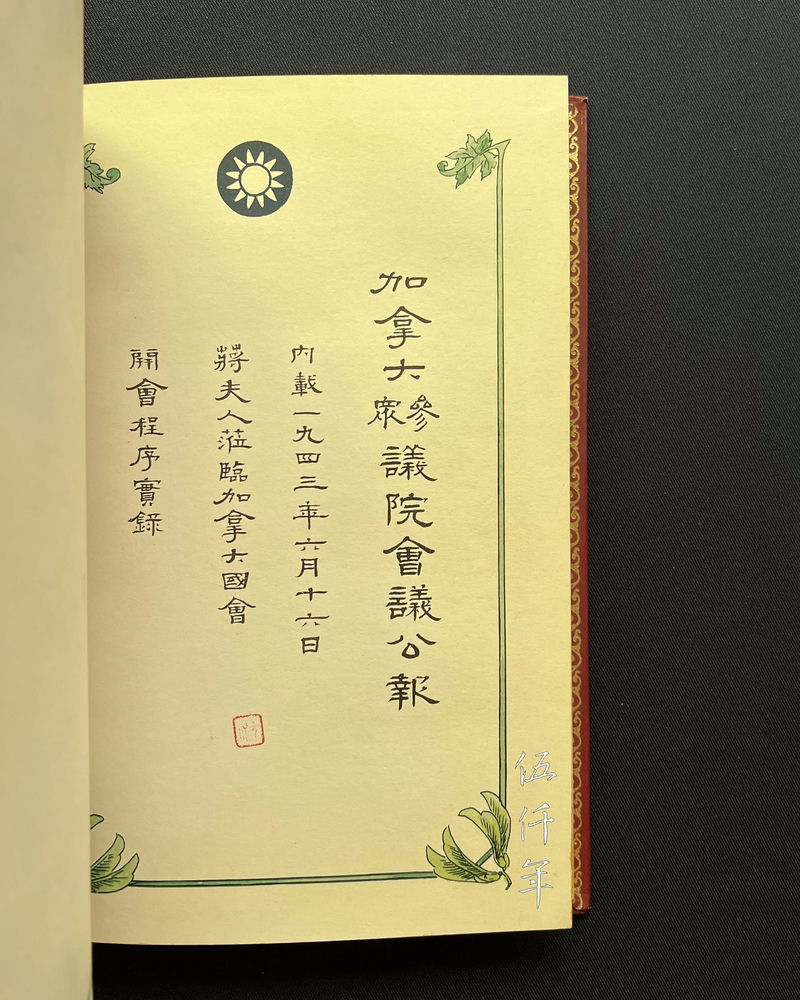 加拿大參眾議院會議公報
內載一九四三年六月十六日
蔣夫人蒞臨加拿大國會
開會程序實錄
伍仟年